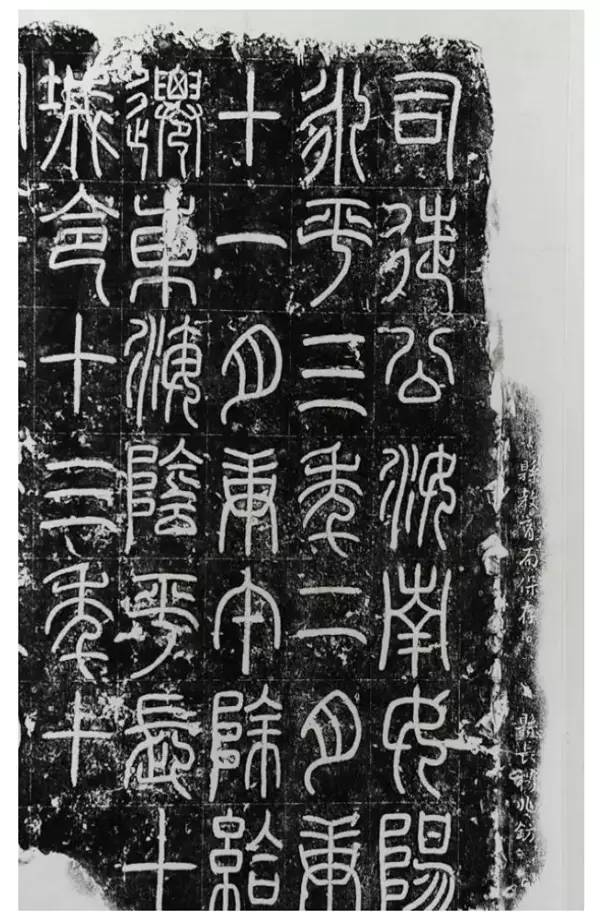 縣教育局保存。縣長
司徒公汝南女陽
永平三年二月庚
十一月庚午除給
遷東海陰平長十
城令十三年十